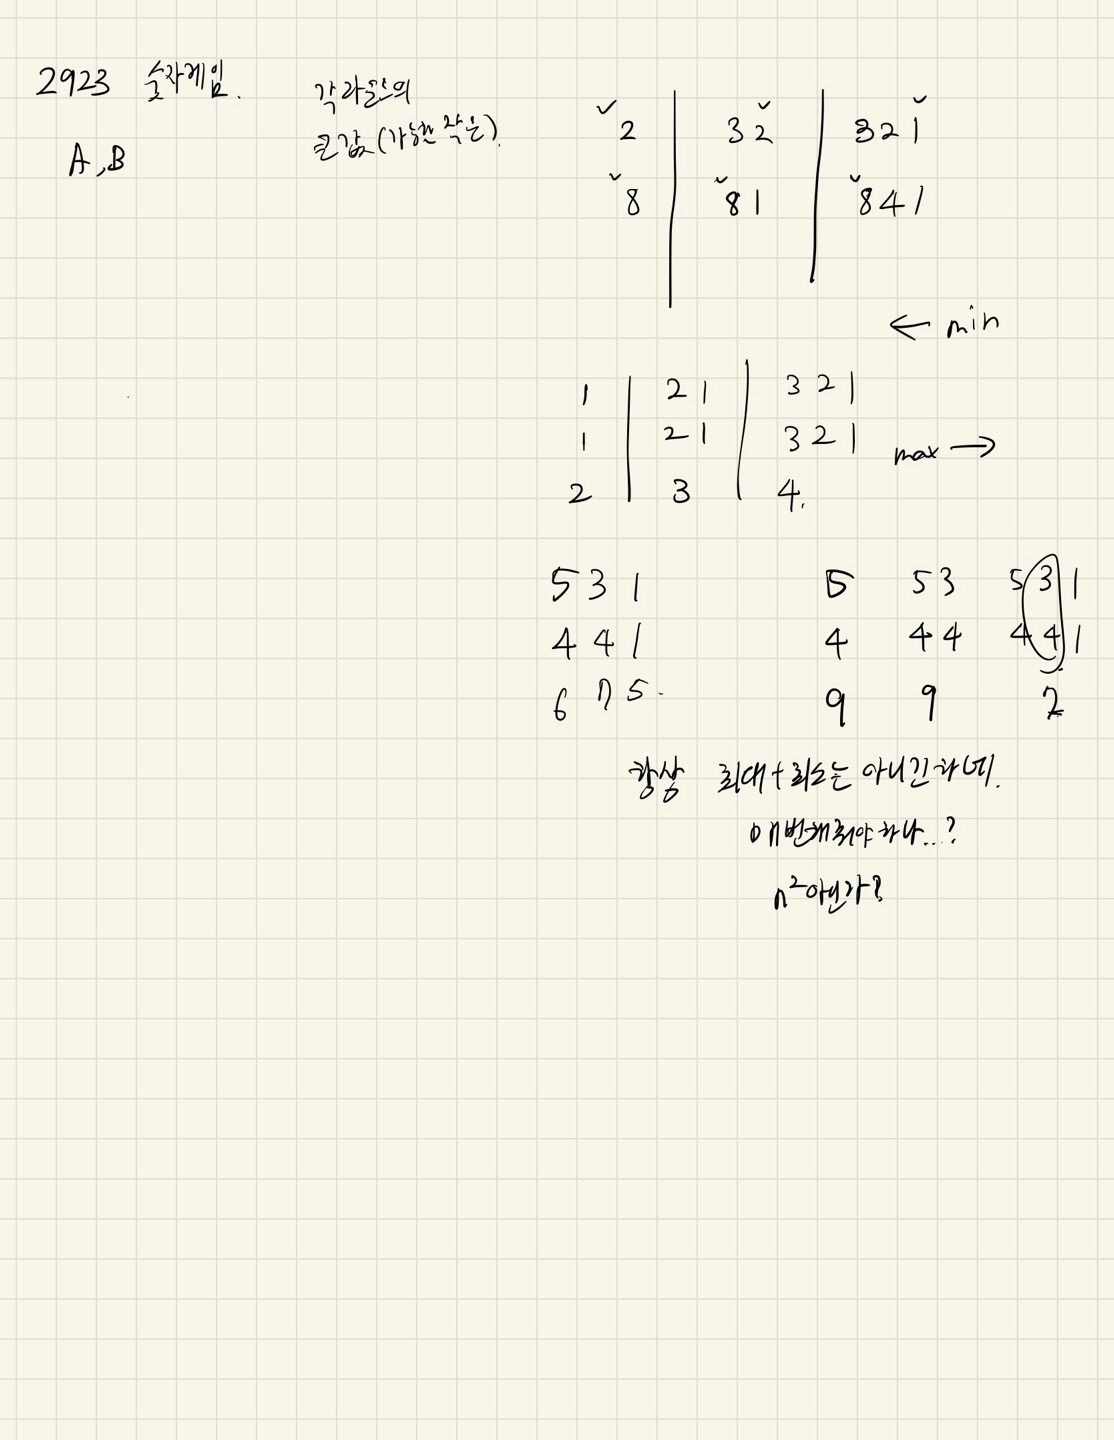 2923 숫자게임.
A,B
각 라운드의
큰값(가능한 작은).
2 | 32 | 321
8 | 81 | 841
← min
1 | 21 | 321
1 | 21 | 321
2 | 3 | 4.
max →
531
441
675.
5 53 531
4 44 441
9 9 2
항상 최대+최소는 아니긴하네.
매번해줘야하나...?
n²아닌가?